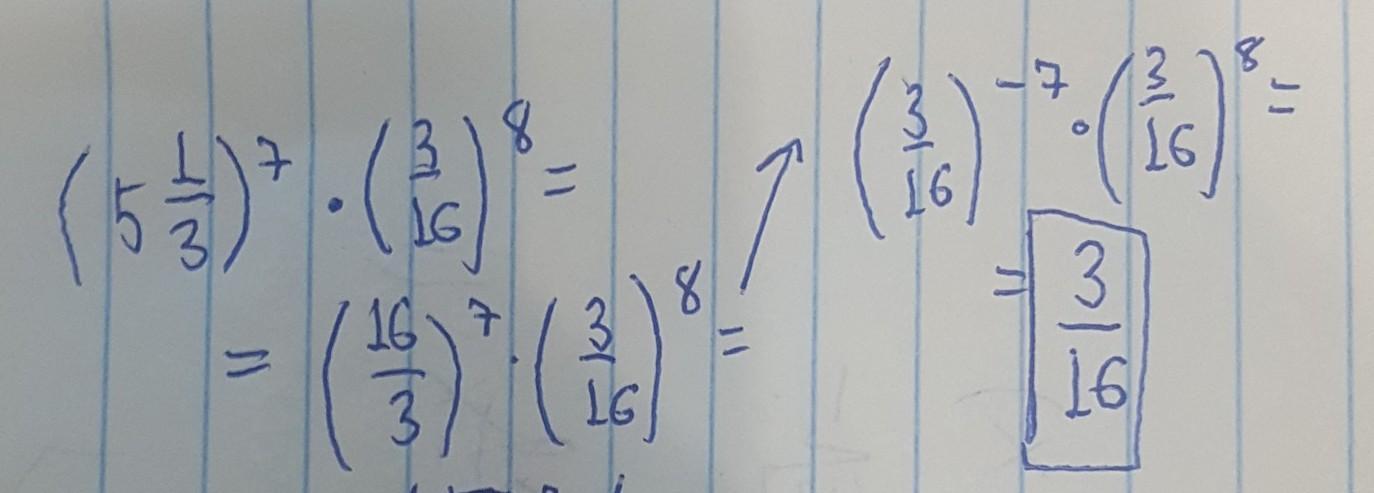 (5 1/3)^7 · (3/16)^8 =
= (16/3)^7 · (3/16)^8 =
(3/16)^-7 · (3/16)^8 =
= 3/16